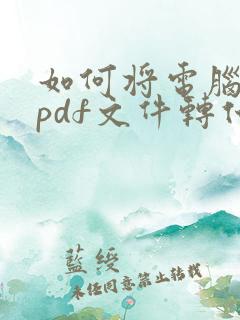 如何将电腦
pdf文件轉
藍綬
未经同意禁止转载